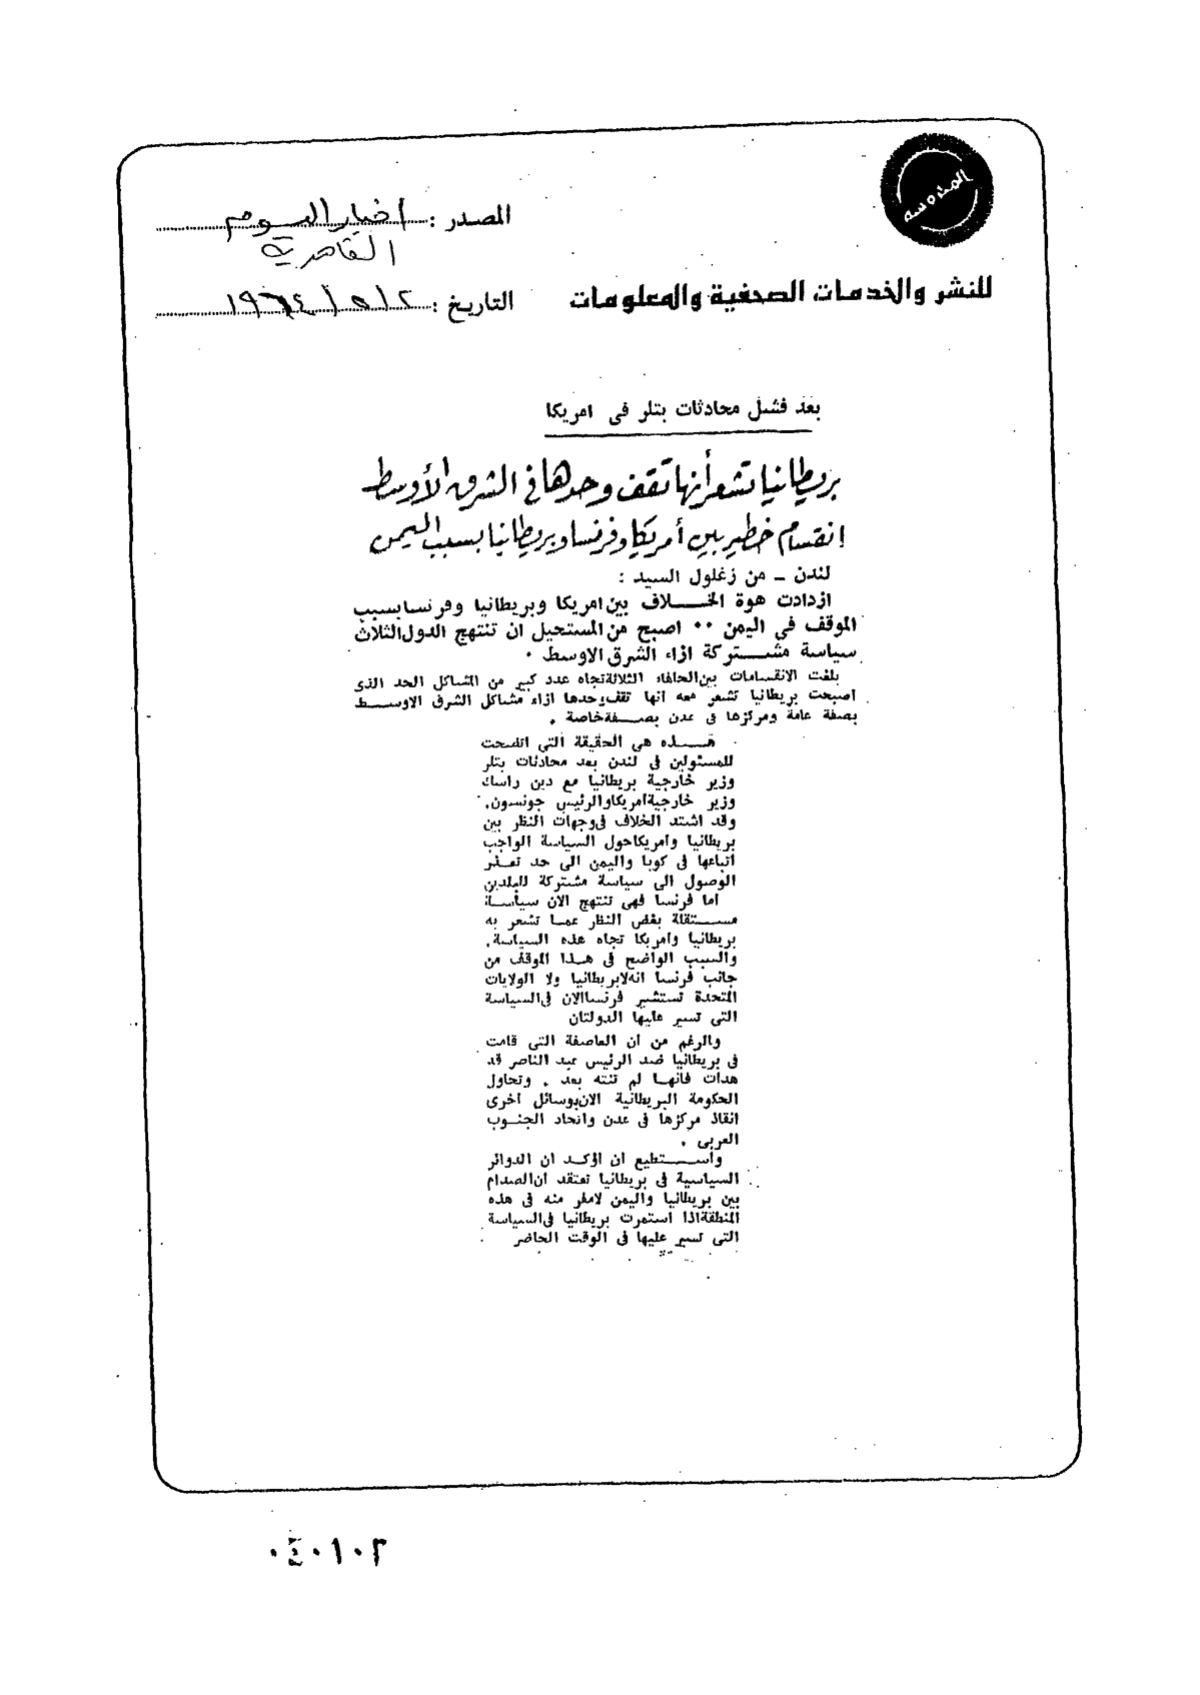 المحروسة
المصدر : اخبار اليوم
القاهرية
للنشر والخدمات الصحفية والمعلومات
التاريخ : ٢ / ٥ / ١٩٦٤
بعد فشل محادثات بتلر فى امريكا
بريطانيا تشعر أنها تقف وحدها فى الشرق الأوسط
انقسام خطير بين أمريكا وفرنسا وبريطانيا بسبب اليمن
لندن - من زغلول السيد :
ازدادت هوة الخلاف بين امريكا وبريطانيا وفرنسا بسبب
الموقف فى اليمن ٠٠ اصبح من المستحيل ان تنتهج الدول الثلاث
سياسة مشتركة ازاء الشرق الاوسط ٠
بلغت الانقسامات بين الحلفاء الثلاثة تجاه عدد كبير من المشاكل الحد الذى
اصبحت بريطانيا تشعر معه انها تقف وحدها ازاء مشاكل الشرق الاوسط
بصفة عامة ومركزها فى عدن بصفة خاصة .
هذه هى الحقيقة التى اتضحت
للمسئولين فى لندن بعد محادثات بتلر
وزير خارجية بريطانيا مع دين راسك
وزير خارجية امريكا والرئيس جونسون.
وقد اشتد الخلاف فى وجهات النظر بين
بريطانيا وامريكا حول السياسة الواجب
اتباعها فى كوبا واليمن الى حد تعذر
الوصول الى سياسة مشتركة للبلدين
اما فرنسا فهى تنتهج الان سياسة
مستقلة بغض النظر عما تشعر به
بريطانيا وامريكا تجاه هذه السياسة.
والسبب الواضح فى هذا الموقف من
جانب فرنسا انه لا بريطانيا ولا الولايات
المتحدة تستشير فرنسا الان فى السياسة
التى تسير عليها الدولتان
والرغم من ان العاصفة التى قامت
فى بريطانيا ضد الرئيس عبد الناصر قد
هدات فانها لم تنته بعد . وتحاول
الحكومة البريطانية الان بوسائل اخرى
انقاذ مركزها فى عدن واتحاد الجنوب
العربى .
واستطيع ان اؤكد ان الدوائر
السياسية فى بريطانيا تعتقد ان الصدام
بين بريطانيا واليمن لا مفر منه فى هذه
المنطقة اذا استمرت بريطانيا فى السياسة
التى تسير عليها فى الوقت الحاضر
٠٤٠١٠٢